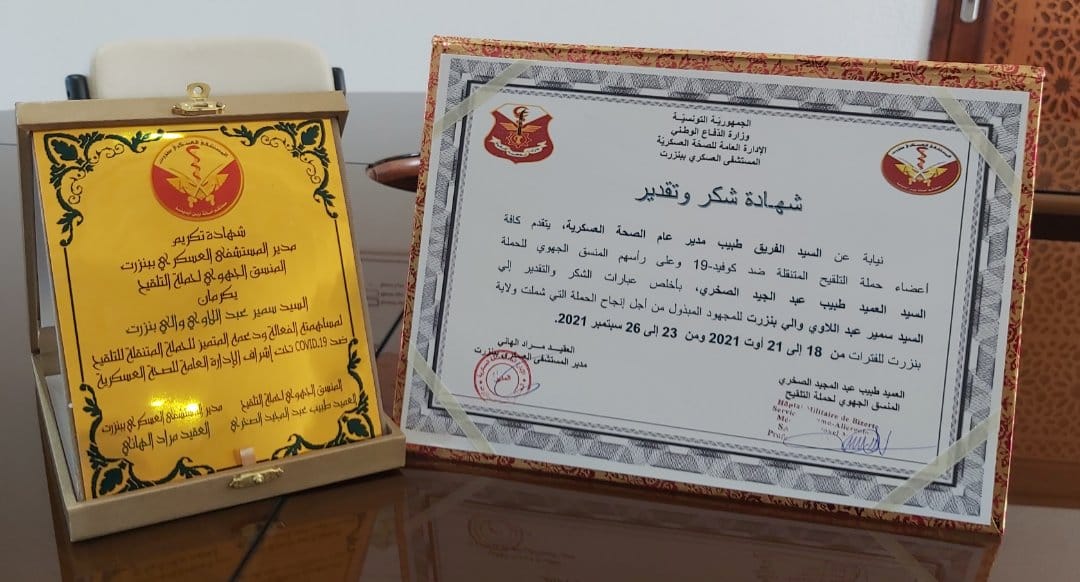 شهادة تكريم
مدير المستشفى العسكري ببنزرت
المنسق الجهوي لحملة التلقيح
يكرمان
السيد سمير عبد اللاوي والي بنزرت
لمساهمته الفعالة ودعمه المتميز للحملة المتنقلة للتلقيح
ضد COVID.19 تحت إشراف الإدارة العامة للصحة العسكرية
المنسق الجهوي لحملة التلقيح
العميد طبيب عبد المجيد الصخري
مدير المستشفى العسكري ببنزرت
العقيد مراد الهاني
الجمهورية التونسية
وزارة الدفاع الوطني
الإدارة العامة للصحة العسكرية
المستشفى العسكري ببنزرت
شهادة شكر وتقدير
نيابة عن السيد الفريق طبيب مدير عام الصحة العسكرية، يتقدم كافة
أعضاء حملة التلقيح المتنقلة ضد كوفيد-19 وعلى رأسهم المنسق الجهوي للحملة
السيد العميد طبيب عبد الجيد الصخري، بأخلص عبارات الشكر والتقدير إلي
السيد سمير عبد اللاوي والي بنزرت للمجهود المبذول من أجل إنجاح الحملة التي شملت ولاية
بنزرت للفترات من 18 إلى 21 أوت 2021 ومن 23 إلى 26 سبتمبر 2021.
العقيد مراد الهاني
مدير المستشفى العسكري ببنزرت
العميد طبيب عبد المجيد الصخري
المنسق الجهوي لحملة التلقيح
Hôpital Militaire de Bizerte